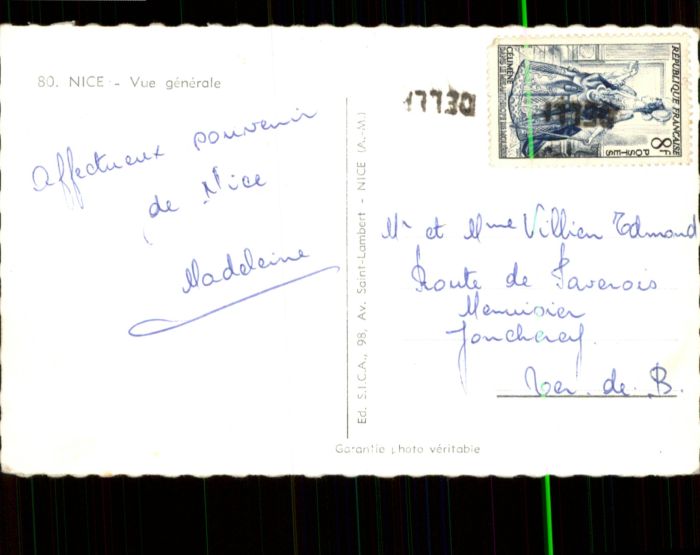 80. NICE - Vue générale
Affectueux souvenir
de Nice
Madeleine
Ed. S.I.C.A., 98, Av. Saint-Lambert - NICE (A.-M.)
17730
17730
CELIMENE
REPUBLIQUE FRANCAISE
POSTES
8F
Mr et Mme Villien Edmond
Route de Faverois
Menuisier
Joncherey
Ter. de B.
Garantie photo véritable